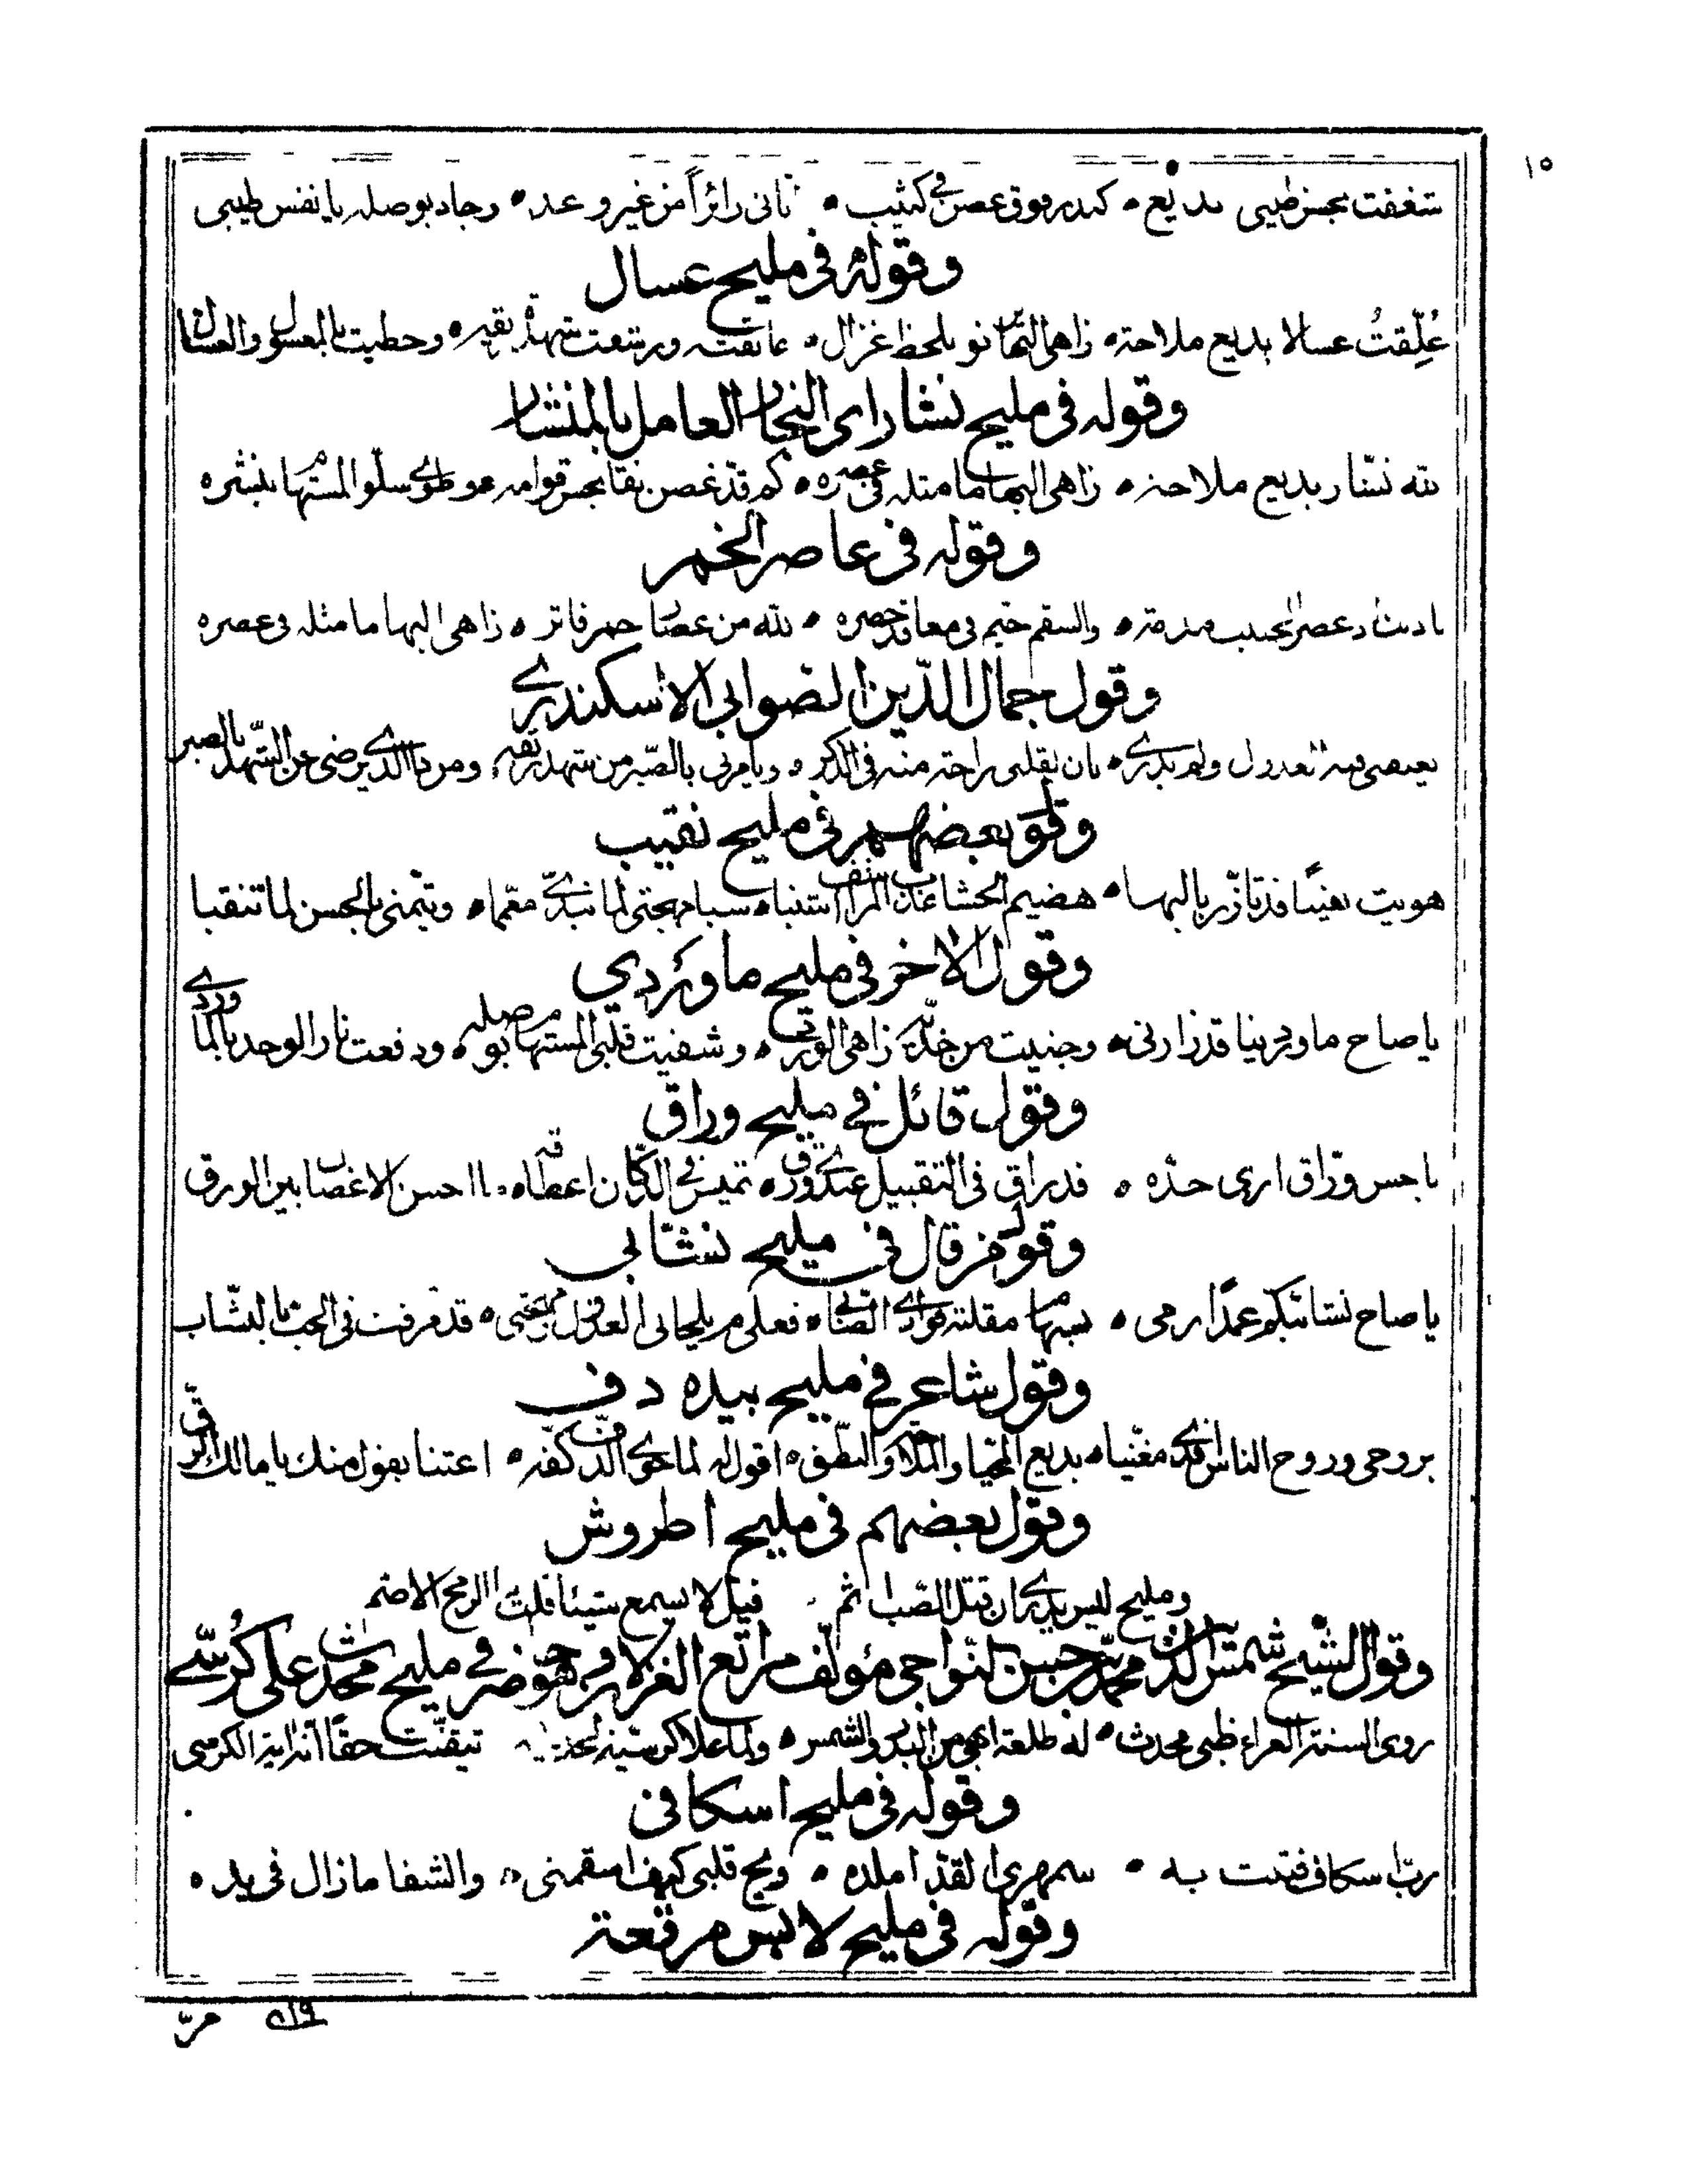 ١٥
شغفت بحسن طيبي بديع ٥ كبدر فوق غصن في كثيب ٥ تانى زائراً من غير وعد ٥ وجاد بوصله يا نفس طيبي
وقوله في مليح عسال
عُلِّقتُ عسالا بديع ملاحة ٥ زاهي البها يرنو بلحظ غزال ٥ عانقته ورشفت شهدة ريقه ٥ وحظيت بالمعسول والعسال
وقوله في مليح نشار اى النجار العامل بالمنشار
لله نشار بديع ملاحة ٥ زاهي البها ما مثله في عصره ٥ كم قد غصن نقا بحسن قوامه ٥ وطوى سلو المستهام بنشره
وقوله في عاصر الخمر
والسقم خيم في معاقد خصره ٥ لله من عصار خمر فاتر ٥ زاهي البها ما مثله في عصره
وقول جمال الدين الصوابي الاسكندري
العذول ولم يدري ٥ بان لقلبي راحة منه في الذكر ٥ ويامرني بالصبر من شهد ريقه ٥ ومن ذا الذي يرضى عن الشهد بالصبر
وقول بعضهم في مليح نقيب
هويت نقيبا قد تازر بالبها ٥ هضيم الحشا عذب المراشف اشنبا ٥ سبا مهجتي لما تبدى معمما ٥ ويتمني بالحسن لما تنقبا
وقول الاخر في مليح ماوردي
يا صاح ماورديا قد زارني ٥ وجنيت من خده زاهي الورد ٥ وشفيت قلبي المستهام بوصله ٥ ودفعت نار الوجد بالماوردي
وقول قائل في مليح وراق
يا حسن وراق ارى خده ٥ قد راق في التقبيل عندي ورق ٥ تميس في الدكان اعطافه ٥ ما احسن الاغصان بين الورق
وقول من قال في مليح نشابي
يا صاح نشابيكم عمدا رمى ٥ بسهام مقلته فؤادي الصابي ٥ فعلى م يلحاني العذول ومهجتي ٥ قد مزقت في الحب بالنشاب
وقول شاعر في مليح بيده دف
بروحي وروح الناس افدي مغنيا ٥ بديع المحيا والملاحة والنطق ٥ اقول له لما حوى الدف كفه ٥ اعتنا بقول منك يا مالك الرق
وقول بعضهم في مليح اطروش
ومليح ليس يدري ان قتل الصب اثم ٥ قيل لا يسمع شيئا قلت الرمح الاصم
وقول الشيخ شمس الدين محمد بن حسن النواجي مؤلف مراتع الغزلان وهو في مليح محدث على كرسي
روى السنة الغراء ظبي محدث ٥ له طلعة ابهى من البدر والشمس ٥ ولما علا كرسيه تيقنت حقا انه اية الكرسي
وقوله في مليح اسكافي
رب اسكاف فتنت به ٥ سمهري القد املده ٥ ويح قلبي كيف اسقمني ٥ والشفا ما زال في يده
وقوله في مليح لابس مرقعة